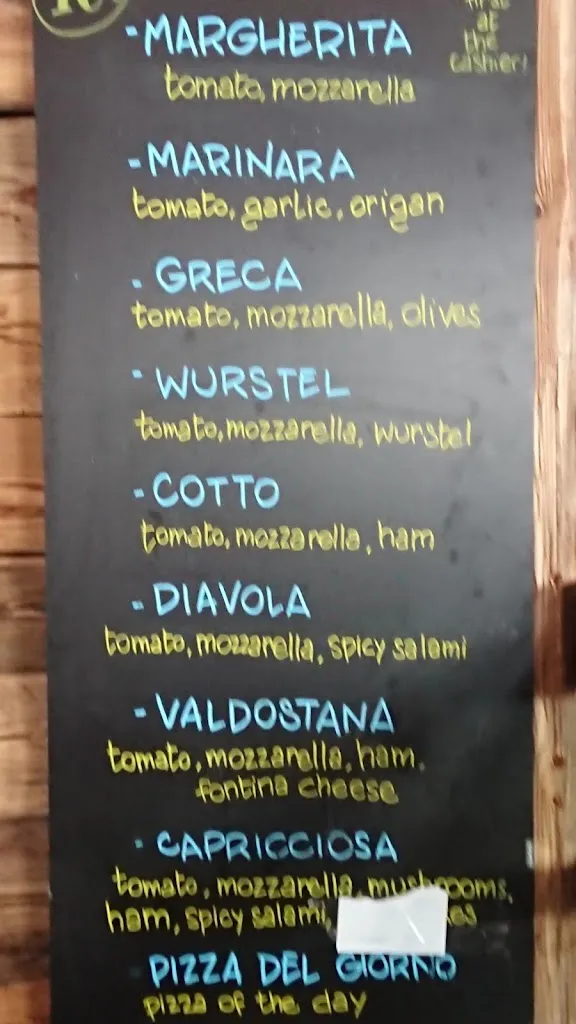 10
first
at
the
cashier!
- MARGHERITA
tomato, mozzarella
- MARINARA
tomato, garlic, origan
- GRECA
tomato, mozzarella, olives
- WURSTEL
tomato, mozzarella, wurstel
- COTTO
tomato, mozzarella, ham
- DIAVOLA
tomato, mozzarella, spicy salami
- VALDOSTANA
tomato, mozzarella, ham,
fontina cheese
- CAPRICCIOSA
tomato, mozzarella, mushrooms,
ham, spicy salami,
PIZZA DEL GIORNO
pizza of the day